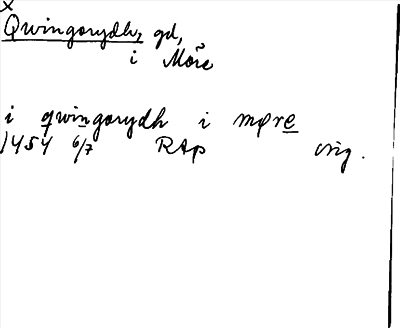 x
Qwingorydh, gd,
i Möre
i qwingorydh i møre
1454 6/7 RAp orig.